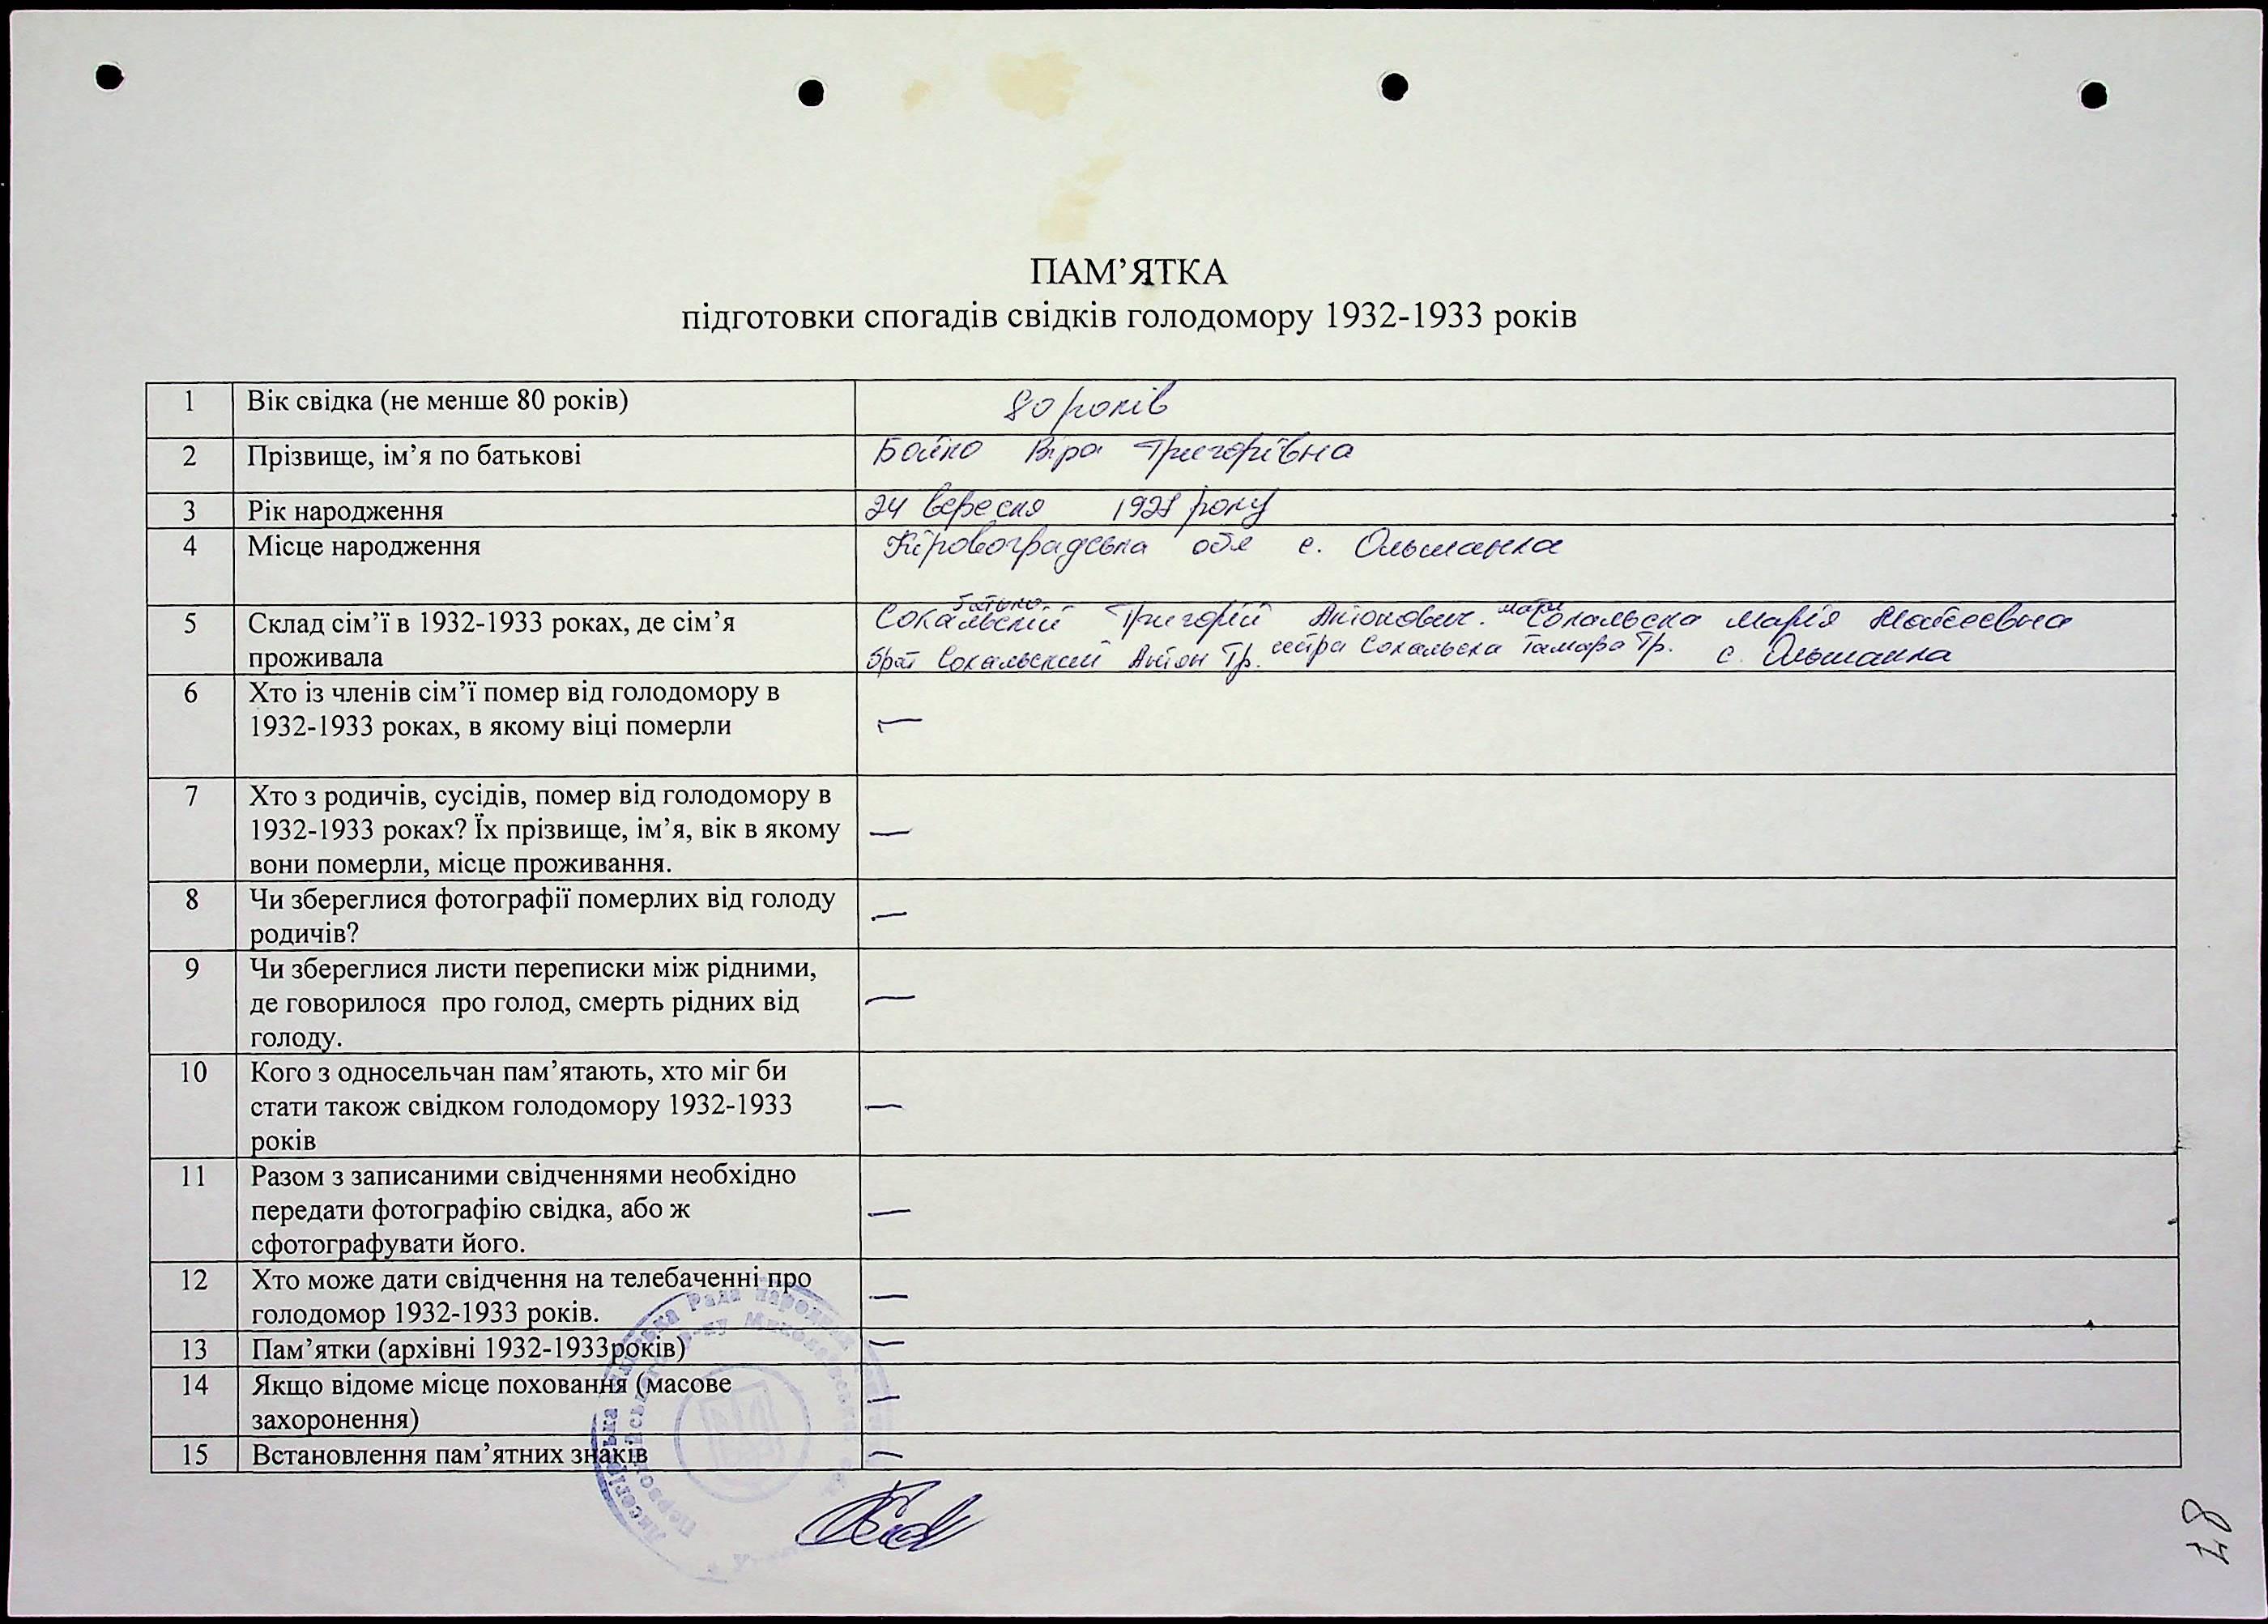 ПАМ’ЯТКА
підготовки спогадів свідків голодомору 1932-1933 років
1 Вік свідка (не менше 80 років) 80 років
2 Прізвище, ім’я по батькові Бойко Віра Григорівна
3 Рік народження 24 вересня 1928 року
4 Місце народження Кіровоградська обл с. Ольшанка
батько мати
5 Склад сім’ї в 1932-1933 роках, де сім’я Сокальский Григорій Антонович. Сокальска Марія Мойсеевна
проживала брат Сокальский Антон Гр. сестра Сокальска Тамара Гр. с. Ольшанка
6 Хто із членів сім’ї помер від голодомору в
1932-1933 роках, в якому віці померли —
7 Хто з родичів, сусідів, помер від голодомору в
1932-1933 роках? Їх прізвище, ім’я, вік в якому —
вони померли, місце проживання.
8 Чи збереглися фотографії померлих від голоду —
родичів?
9 Чи збереглися листи переписки між рідними,
де говорилося про голод, смерть рідних від —
голоду.
10 Кого з односельчан пам’ятають, хто міг би
стати також свідком голодомору 1932-1933 —
років
11 Разом з записаними свідченнями необхідно
передати фотографію свідка, або ж —
сфотографувати його.
12 Хто може дати свідчення на телебаченні про —
голодомор 1932-1933 років.
13 Пам’ятки (архівні 1932-1933років) —
14 Якщо відоме місце поховання (масове —
захоронення)
15 Встановлення пам’ятних знаків —
Рада народних
87